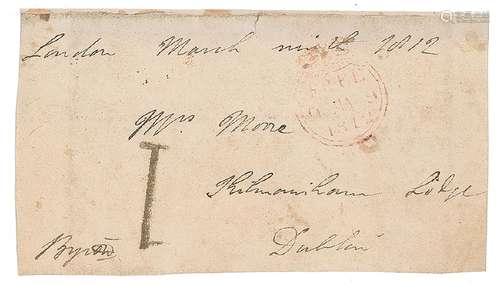 London March ninth 1812
Mrs Moore
Kilmainham Lodge
Dublin
Byron